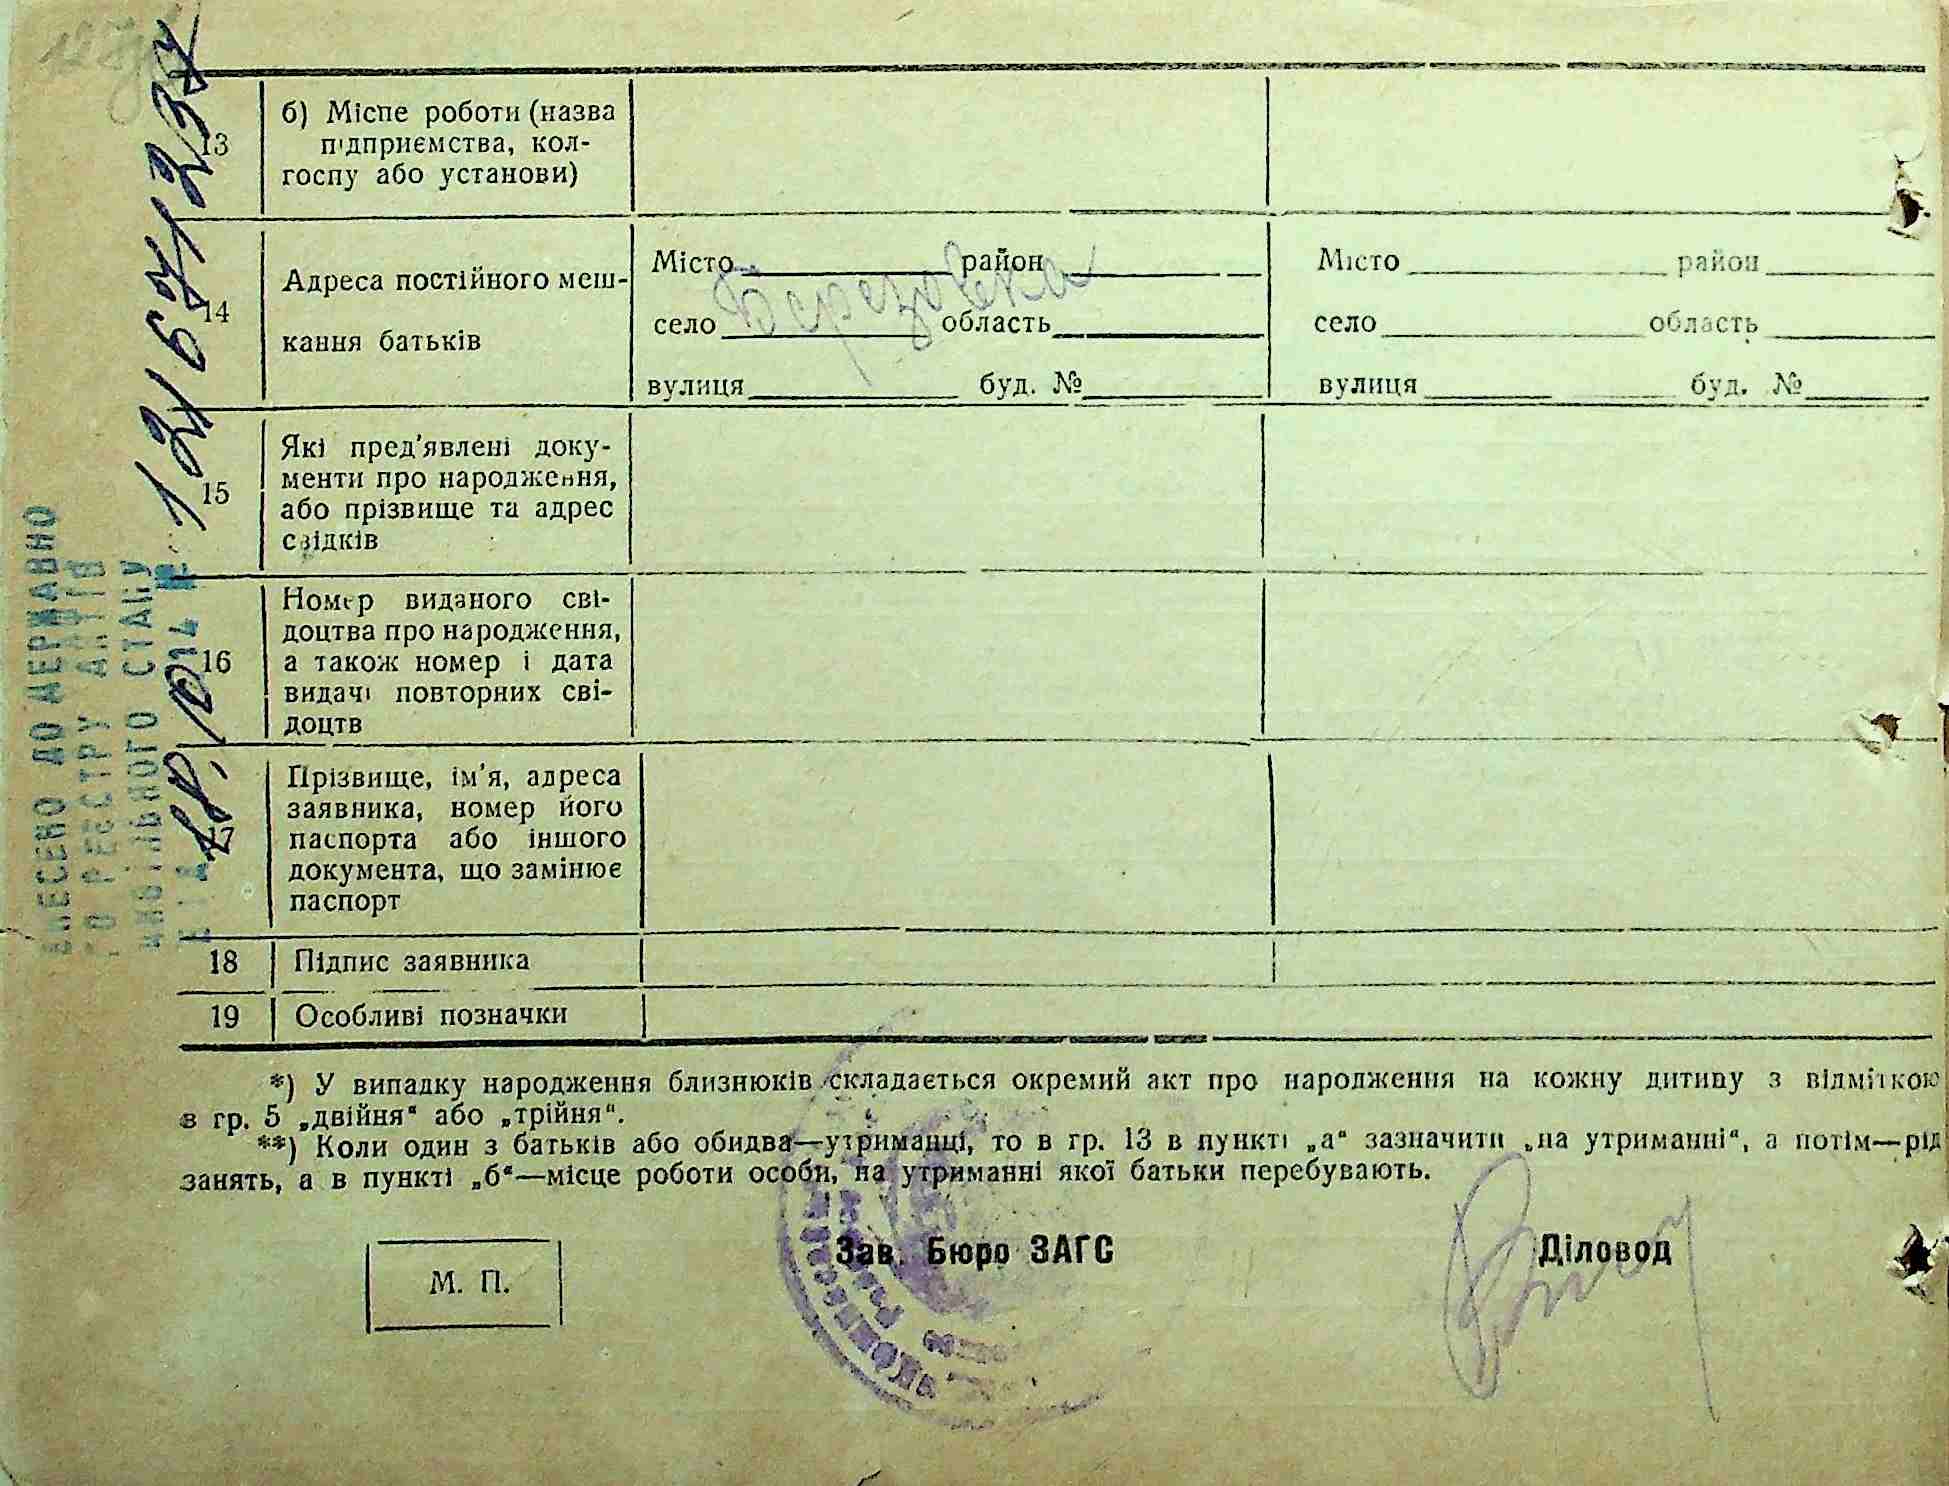 13
б) Міспе роботи (назва
підприємства, кол-
госпу або установи)
14
Адреса постійного меш-
кання батьків
Місто район
село Березовка область
вулиця буд. №
Місто район
село область
вулиця буд. №
15
Які пред'явлені доку-
менти про народження,
або прізвище та адрес
свідків
16
Номер виданого сві-
доцтва про народження,
а також номер і дата
видачі повторних сві-
доцтв
17
Прізвище, ім'я, адреса
заявника, номер його
паспорта або іншого
документа, що замінює
паспорт
18 Підпис заявника
19 Особливі позначки
*) У випадку народження близнюків складається окремий акт про народження на кожну дитину з відміткою
в гр. 5 „двійня“ або „трійня“.
**) Коли один з батьків або обидва—утриманці, то в гр. 13 в пункті „а“ зазначити „на утриманні“, а потім—рід
занять, а в пункті „б“—місце роботи особи, на утриманні якої батьки перебувають.
М. П.
Зав. Бюро ЗАГС
Діловод
ВНЕСЕНО ДО ДЕРЖАВНО
ГО РЕЄСТРУ АКТІВ
ЦИВІЛЬНОГО СТАНУ